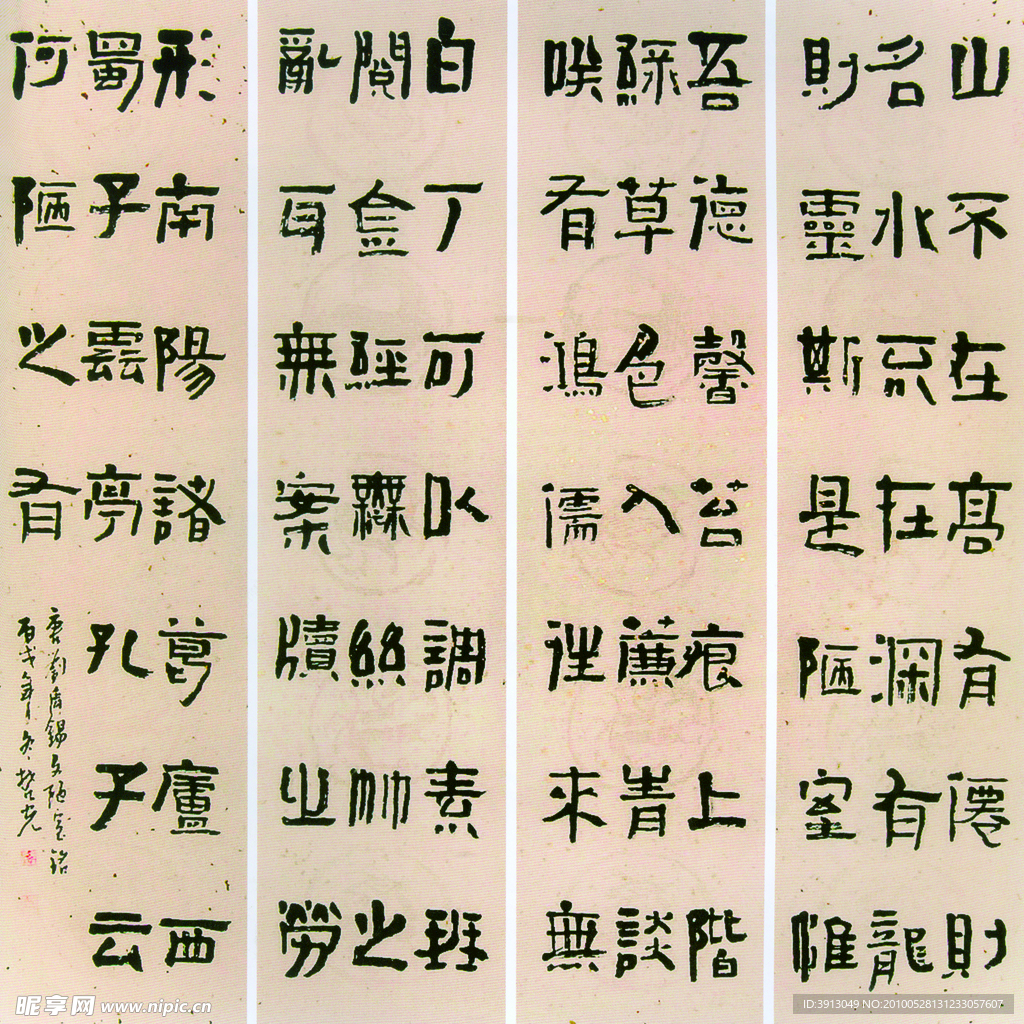 山不在高有僊則
名水不在深有龍
則靈斯是陋室惟
吾德馨苔痕上階
綠草色入簾青談
笑有鴻儒往來無
白丁可以調素琴
閱金經無絲竹之
亂耳無案牘之勞
形南陽諸葛廬西
蜀子雲亭孔子云
何陋之有
唐劉禹錫文陋室銘
丙戌年冬哲光
昵享网 www.nipic.cn
ID:3913049 NO:20100528131233057607